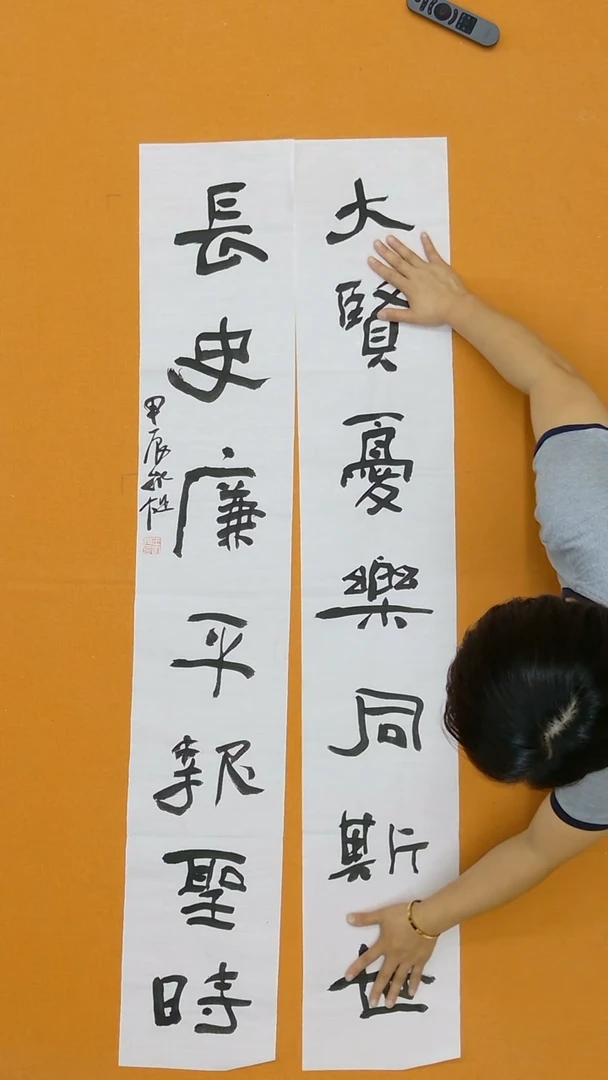 大賢憂樂同斯世
長史廉平報聖時
甲辰